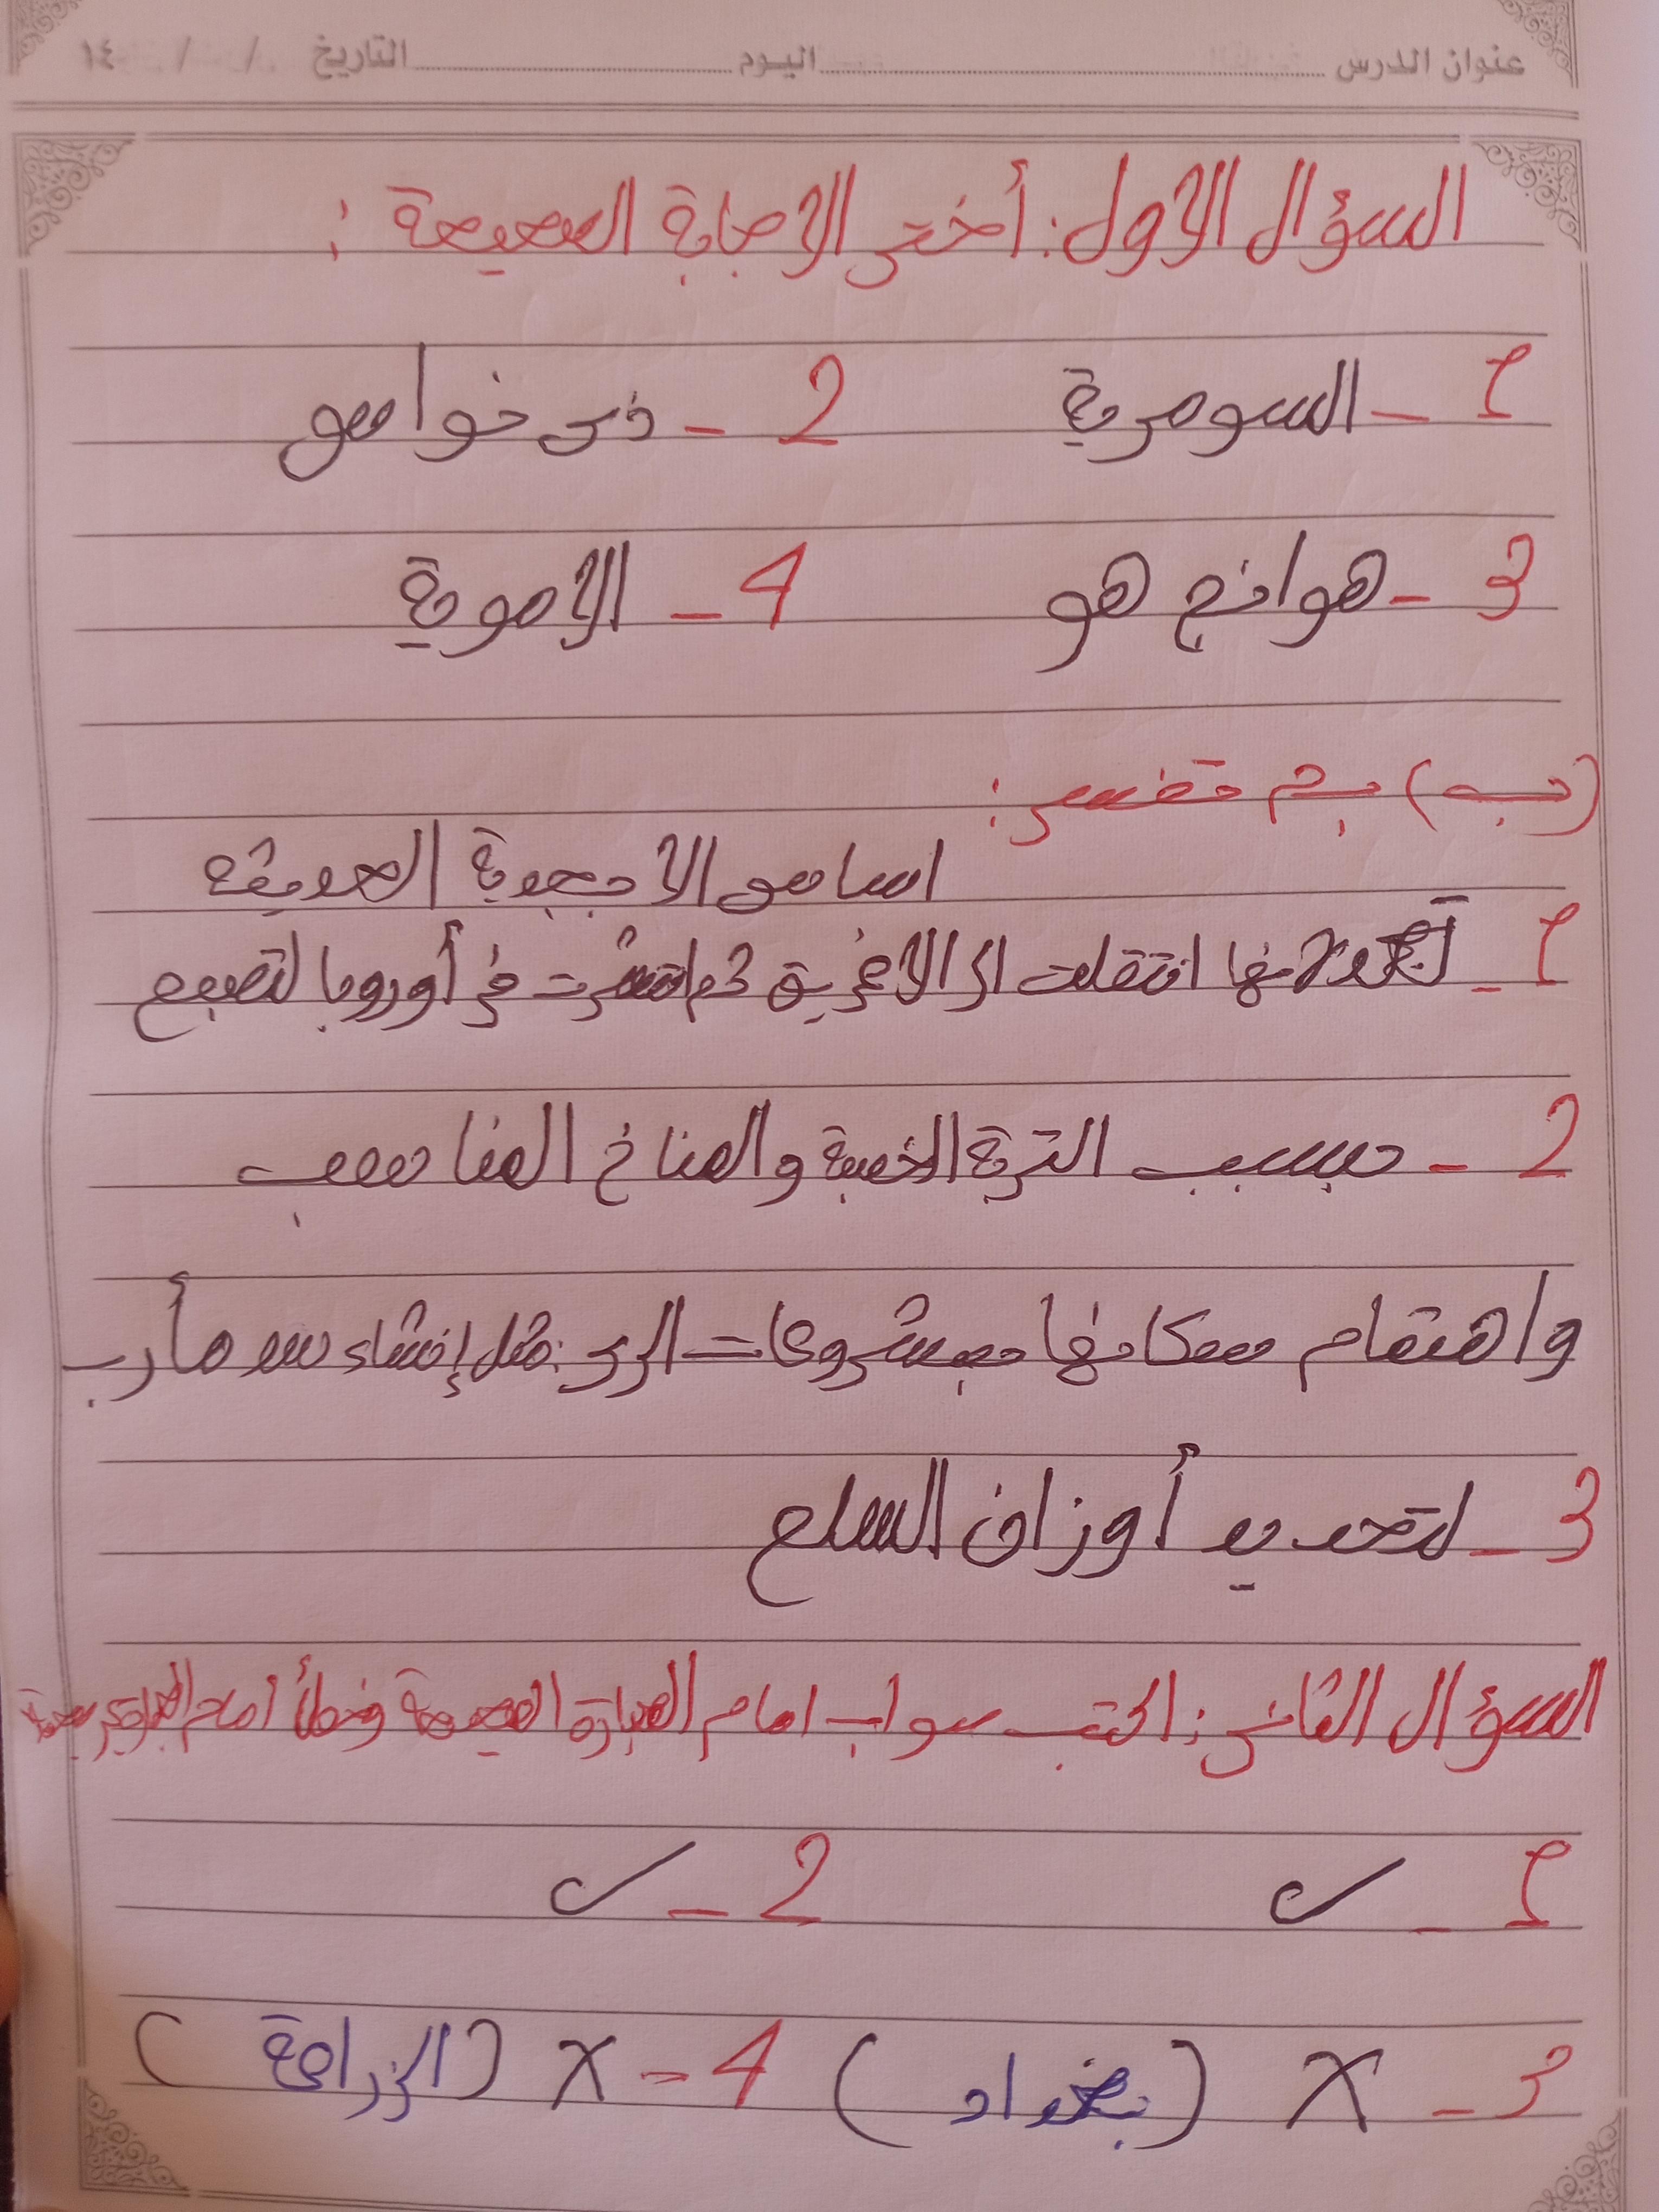 عنوان الدرس اليوم التاريخ / / ١٤
السؤال الاول: أختر الاجابة الصحيحة :
1 - السومرية 2 - ذي نواس
3 - هوانج هو 4 - الاموية
(ب) بم تفسر :
اساس الابجدية الحديثة
1 - لانها انتقلت الى الاغريق ثم انتشرت في أوروبا لتصبح
2 - بسبب التربة الخصبة والمناخ المناسب
واهتمام سكانها بمشروعات الري : مثل إنشاء سد مأرب
3 - لتحديد أوزان السلع
السؤال الثاني : اكتب صواب امام العبارة الصحيحة وخطأ امام العبارة
1 - ✓ 2 - ✓
3 - X (بغداد) 4 - X (الزراعة)